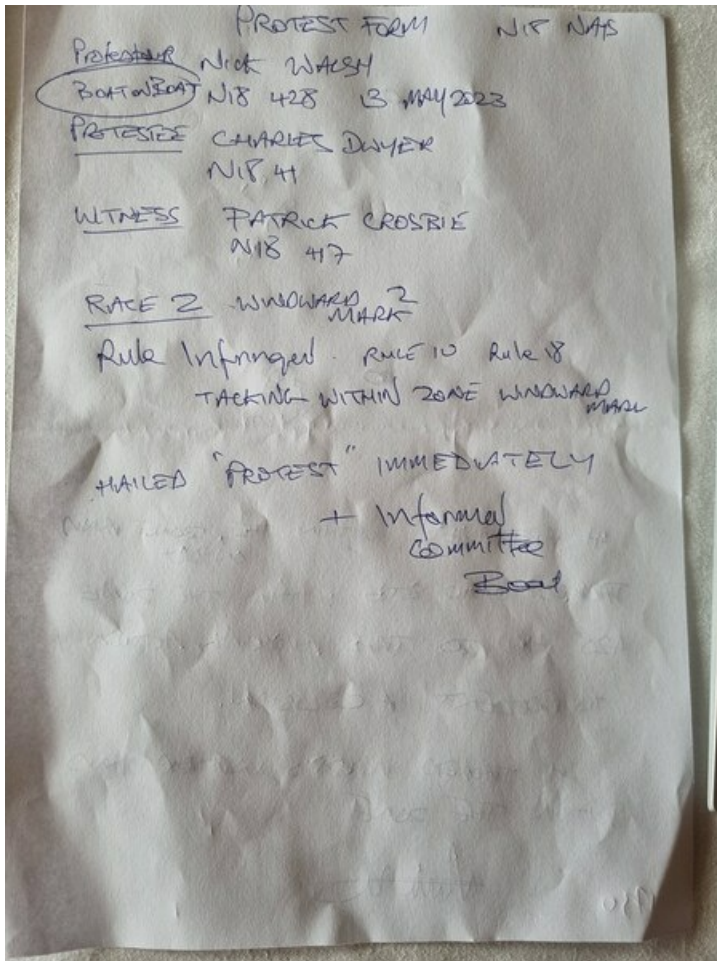 PROTEST FORM N18 NATS
Protestour NICK WALSH
BOAT ON BOAT N18 428 13 MAY 2023
PROTESTEE CHARLES DWYER
N18 41
WITNESS PATRICK CROSBIE
N18 417
RACE 2 WINDWARD 2
MARK
Rule Infringed. RULE 10 Rule 18
TACKING WITHIN ZONE WINDWARD
MARK
HAILED "PROTEST" IMMEDIATELY
+ Informed
Committee
Boat